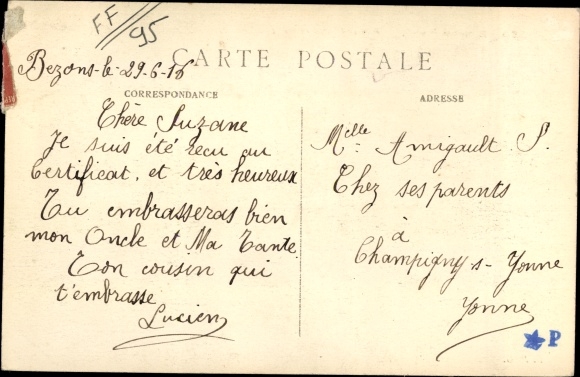 FF/95
CARTE POSTALE
Bezons-le-29-6-18
CORRESPONDANCE
Chère Suzane
Je suis été reçu au
Certificat, et très heureux
Tu embrasseras bien
mon Oncle et Ma Tante.
Ton cousin qui
t'embrasse
Lucien
ADRESSE
Melle Amigault S.
Chez ses parents
à
Champigny s- Yonne
Yonne
P